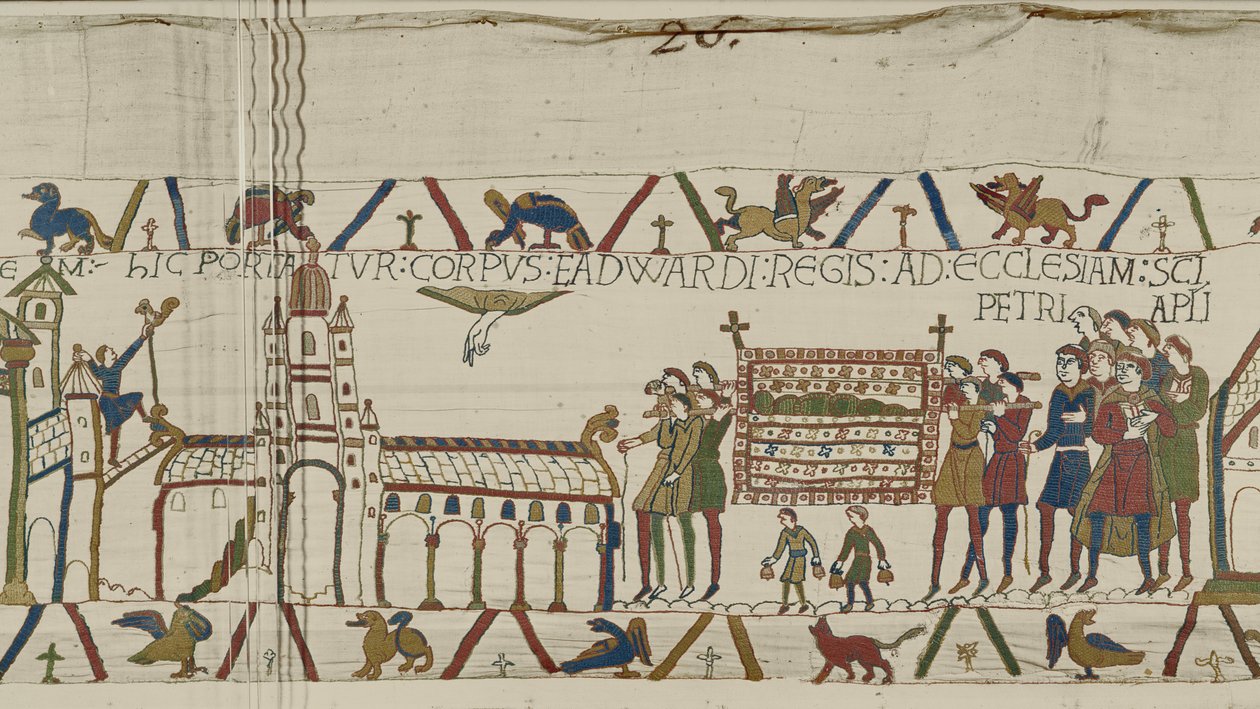 26.
E M:- hIC PORTATVR:CORPVS:EADWARDI:REGIS:AD:ECCLESIAM:SCI
PETRI APLI